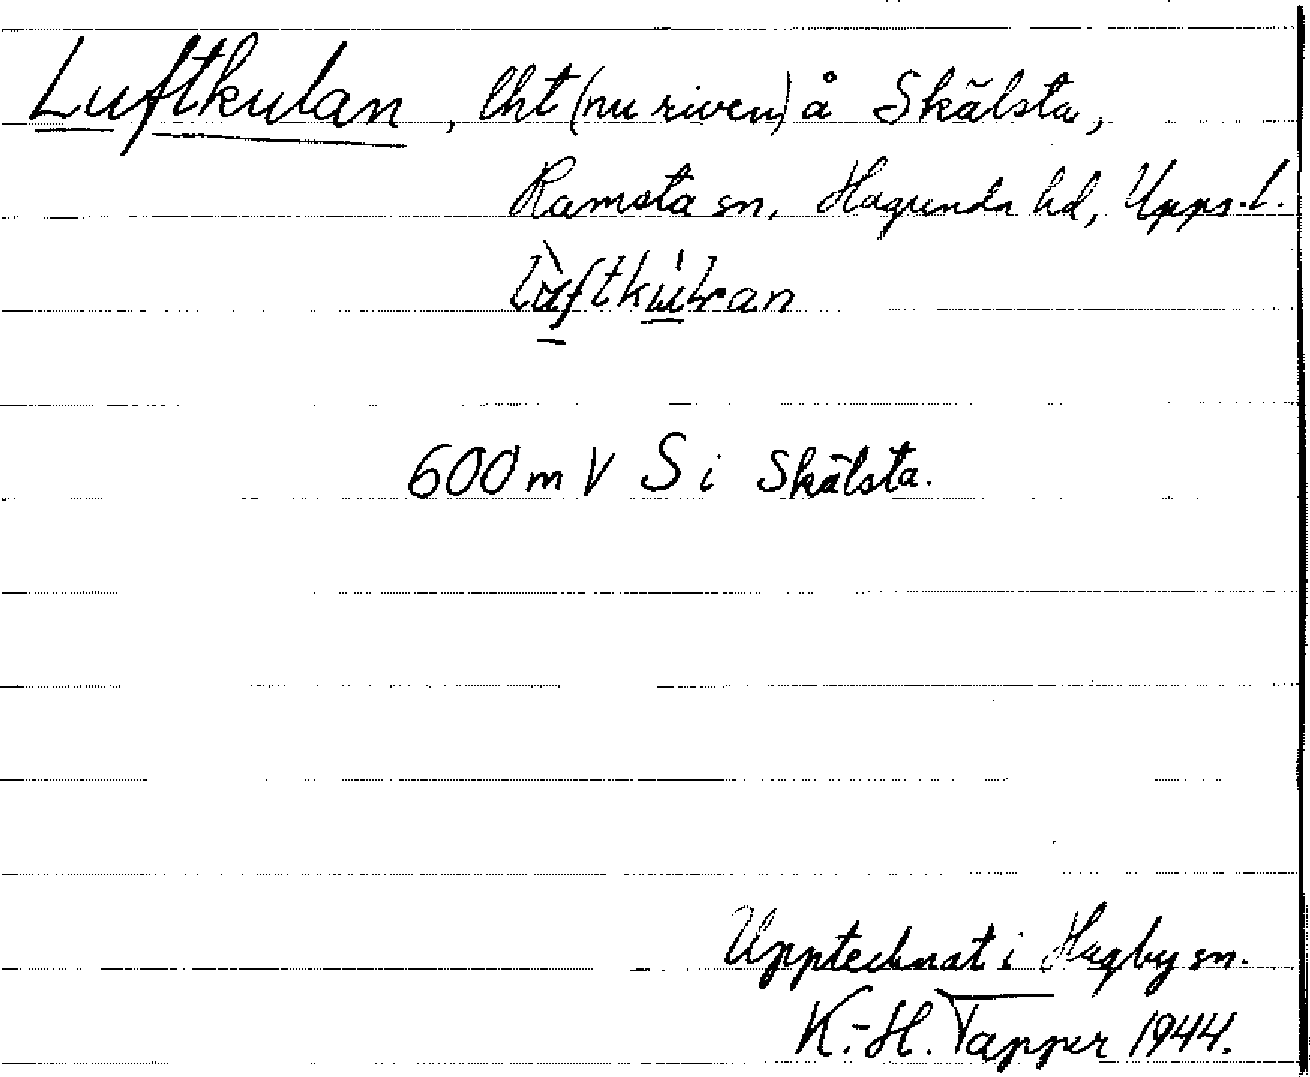 Luftkulan, lht (nu riven) å Skälsta,
Ramsta sn, Hagunda hd, Upps. l.
600 m V S i Skälsta.
Upptecknat i Hagby sn.
K.-H. Tapper 1944.